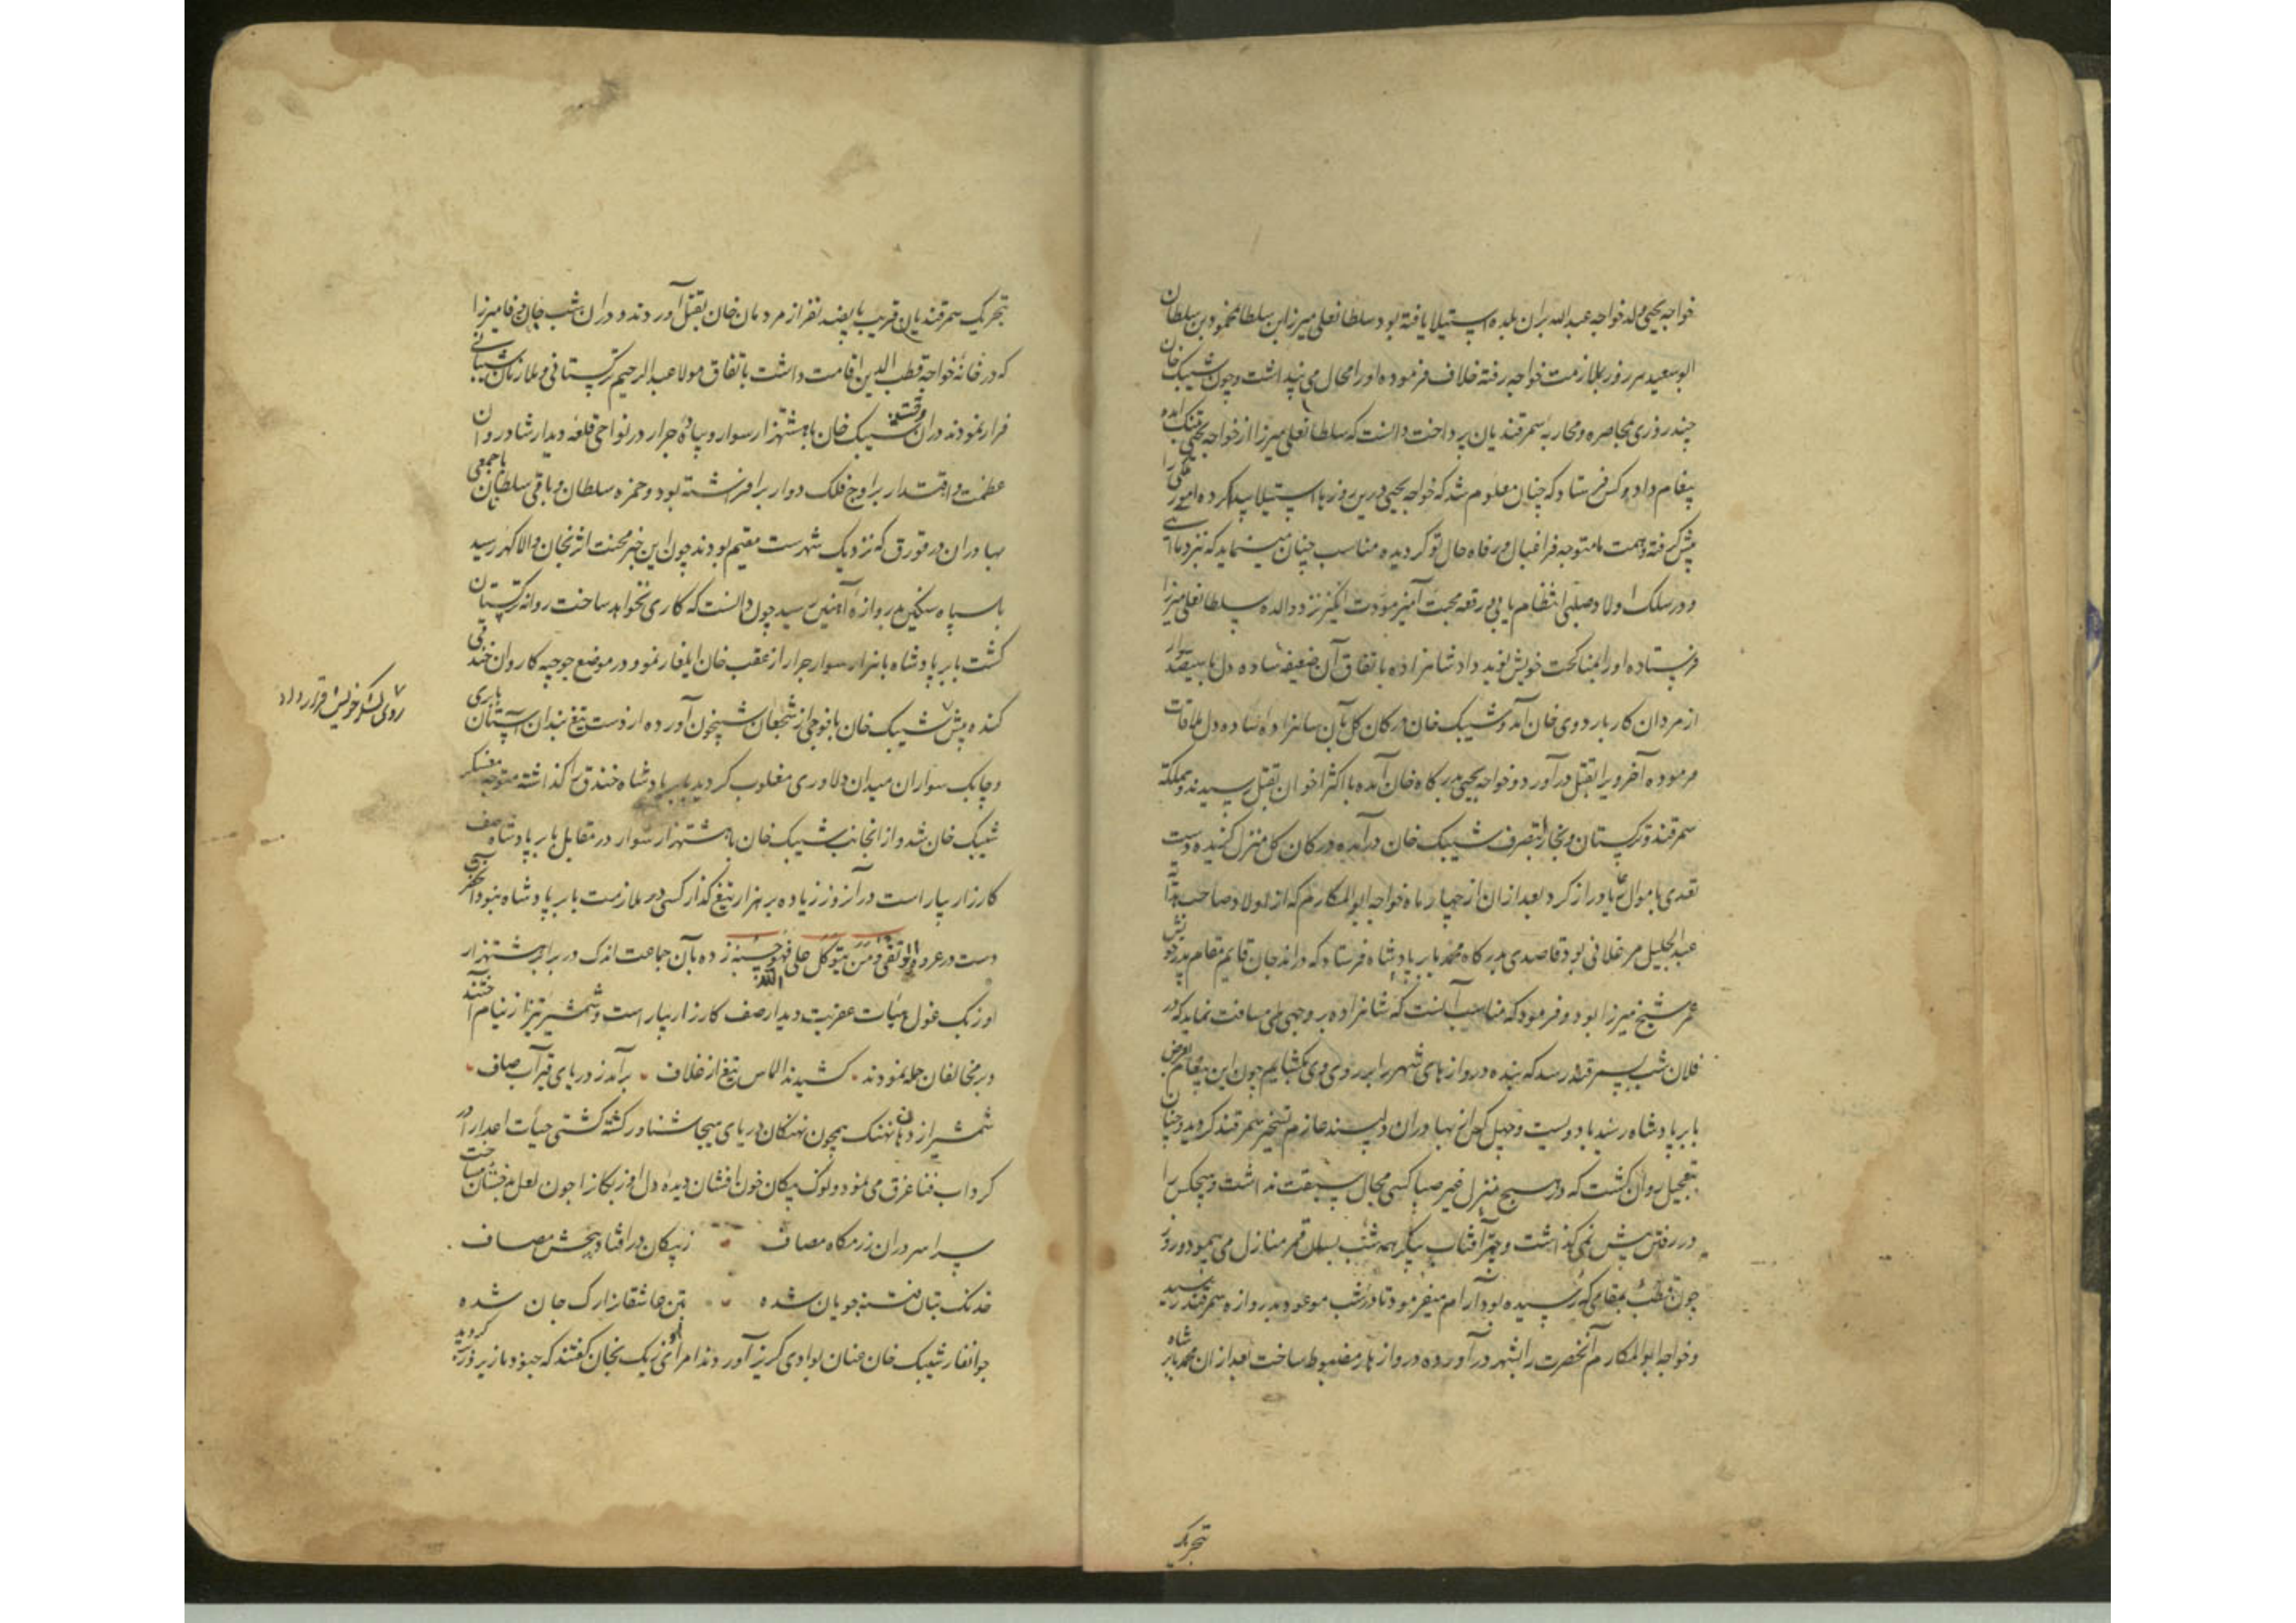 خواجه یحیی ولد خواجه عبدالله بران بلده استیلا یافته بود سلطانعلی میرزا بن سلطانمحمود بن سلطان
ابوسعید هر روز بملازمت خواجه رفته خلاف فرموده او را محال می پنداشت و چون شیبک خان
چند روزی بمحاصره و محاربه سمرقندیان پرداخت دانست که سلطانعلی میرزا از خواجه یحیی بتنک امده
پیغام داد و کس فرستاد که چنان معلوم شد که خواجه یحیی درین روزها استیلا پیدا کرده امور ملکی را
پیش کرفته و همت ما متوجه فراغبال و رفاه حال تو کردیده مناسب چنان مینماید که بنزد ما آیی
و در سلک اولاد صلبی انتظام یابی و رقعه محبت آمیز مودت انکیز نزد والده سلطانعلی میرزا
فرستاده او را بمناکحت خویش نوید داد شاهزاده باتفاق آن ضعیفه ساده دل با سیصد سوار
از مردان کار باردوی خان آمد و شیبک خان در کان کل بآن شاهزاده ساده دل ملاقات
فرموده آخر ویرا بقتل درآورد و خواجه یحیی بدرکاه خان آمده با اکثر اخوان بقتل رسیدند و مملکة
سمرقند و ترکستان و بخارا بتصرف شیبک خان درآمده در کان کل منزل کزیده دست
تعدی باموال رعایا دراز کرد بعد ازان از چهار ماه خواجه ابوالمکارم که از اولاد صاحب هدایه
عبدالجلیل مرغلانی بود قاصدی بدرکاه محمد بابر پادشاه فرستاد که در اندجان قایم مقام پدر خویش
عمر شیخ میرزا بود و فرمود که مناسب آنست که شاهزاده بر وجهی طی مسافت نماید که در
فلان شب بسمرقند رسد که بنده دروازهای شهر را بر روی وی بکشایم چون این پیغام بعرض
بابر پادشاه رسید با دویست و چهل کس از بهادران دلپسند عازم تسخیر سمرقند کردید و چنان
بتعجیل روان کشت که در هیچ منزل غیر صبا کسی مجال سبقت نداشت و هیچکس را
در رفتن پیش نمیکذاشت و چتر آفتاب پیکر همه شب بسان قمر منازل می پیمود و روز
چون قطب بمقامی که رسیده بود آرام میفرمود تا در شب موعود بدروازه سمرقند رسید
و خواجه ابوالمکارم آنحضرت را بشهر درآورده دروازها را مضبوط ساخت بعد ازان محمد بابر شاه
تحریک
تحریک سمرقندیان قریب بپانصد نفر از مردمان خان بقتل آوردند و دران شب جان وفا میرزا
که در خانهٔ خواجه قطب الدین اقامت داشت باتفاق مولا عبدالرحیم ترکستانی و ملازمان شیبانی
فرار نمودند دران وقت شیبک خان با هشتهزار سوار و پیادهٔ جرار در نواحی قلعه دیدار شادروان
عظمت و اقتدار بر اوج فلک دوار برافراشته بود و حمزه سلطان و باقی سلطانان با جمعی
بهادران در قورق که نزدیک شهرست مقیم بودند چون این خبر محنت اثر بخان والا کهر رسید
با سپاه سنکین بدروازهٔ آهنین رسید چون دانست که کاری نخواهد ساخت روانه ترکستان
کشت بابر پادشاه با هزار سوار جرار از عقب خان ایلغار نمود و در موضع جوجیه کاروان خندقی
کنده پیش شیبک خان با فوجی از شجعان شبیخون آورده از دست تیغ بندان آستان بابری
روی لشکر خویش قرار داد
و چابک سواران میدان دلاوری مغلوب کردید بابر پادشاه خندق را کذاشته متوجه معسکر
شیبک خان شد و از انجانب شیبک خان با هشتهزار سوار در مقابل بابر پادشاه صف
کارزار بیاراست در آنروز زیاده بر هزار تیغ کذار کسی در ملازمت بابر پادشاه نبود
دست در عروة الوثقی و من یتوکل علی الله فهو حسبه زده بآن جماعت اندک در برابر هشتهزار
اوزبک غول هیأت عفریت دیدار صف کارزار بیاراست و شمشیر تیز از نیام آختند
و بر مخالفان حمله نمودند کشیدند الماس تیغ از غلاف برآمد ز دریای قیر آب صاف
شمشیر از دهان نهنک همچون نهنکان دریای هیجا شناور کشته کشتی حیات اعدا را در
کرداب فنا غرق می نمود و نوک پیکان خون افشان دیدهٔ دل اوزبکان را چون لعل بدخشان میساخت
سراسر دران رزمکاه مصاف ز پیکان در افتاد پنجش مصاف
خدنک بتان فتنه جویان شده بتن عاشقانرا رک جان شده
جوانغار شیبک خان عنان بوادی کریز آوردند امرای اوزبک بخان کفتند که جنود ما زیر و زبر کردید